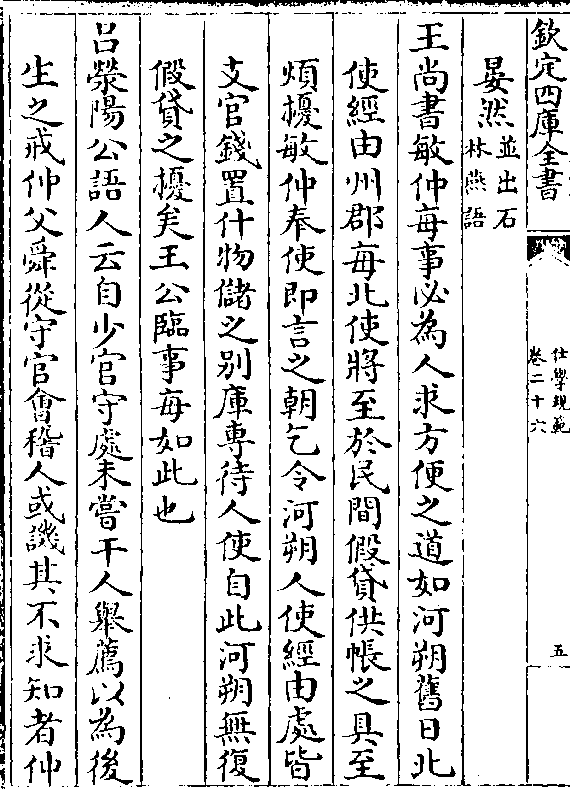 欽定四庫全書
仕學規範
卷二十六
五
晏然並出石
林燕語
王尚書敏仲每事必為人求方便之道如河朔舊日北
使經由州郡每北使將至於民間假貸供帳之具至
煩擾敏仲奉使即言之朝乞令河朔人使經由處皆
支官錢置什物儲之别庫專待人使自此河朔無復
假貸之擾矣王公臨事每如此也
吕滎陽公語人云自少官守處未嘗干人舉薦以為後
生之戒仲父舜從守官會稽人或譏其不求知者仲